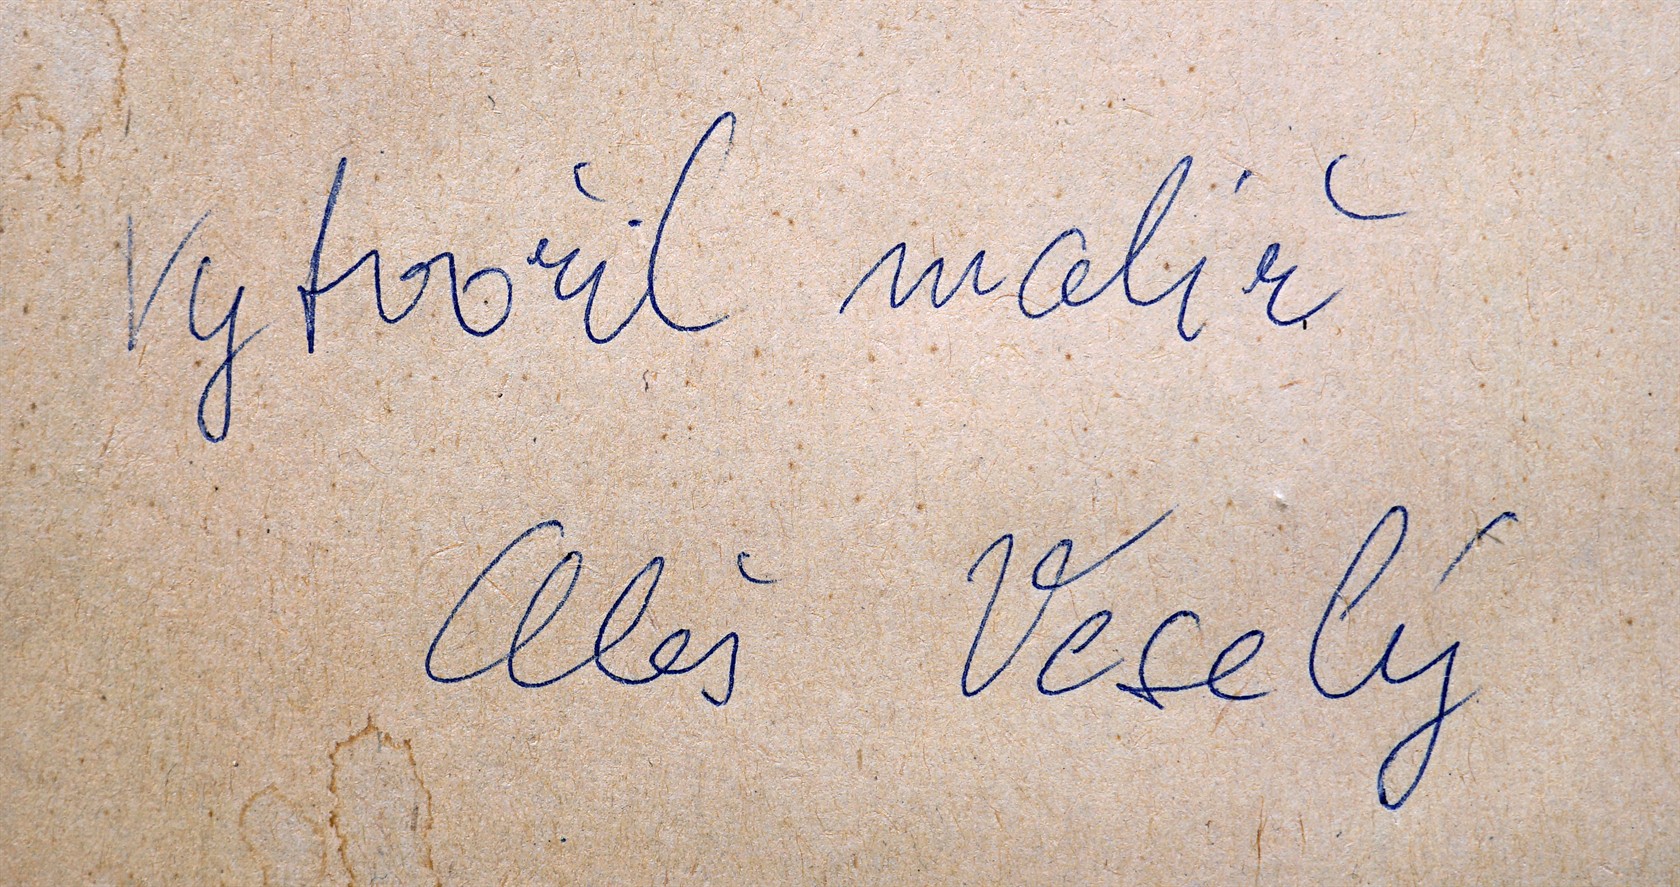 Vytvořil malíř
Aleš Veselý